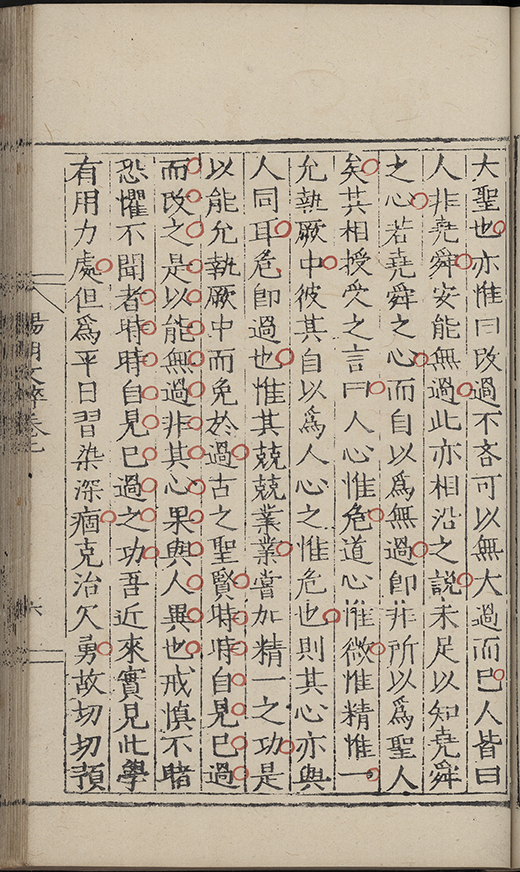 大聖也亦惟曰改過不吝可以無大過而已人皆曰
人非堯舜安能無過此亦相沿之說未足以知堯舜
之心若堯舜之心而自以爲無過卽非所以爲聖人
矣其相授受之言曰人心惟危道心惟微惟精惟一
允執厥中彼其自以爲人心之惟危也則其心亦與
人同耳危卽過也惟其兢兢業業嘗加精一之功是
以能允執厥中而免於過古之聖賢時時自見已過
而改之是以能無過非其心果與人異也戒慎不睹
恐懼不聞者時時自見已過之功吾近來實見此學
有用力處但爲平日習染深痼克治欠勇故切切預
陽明文粹卷之
六